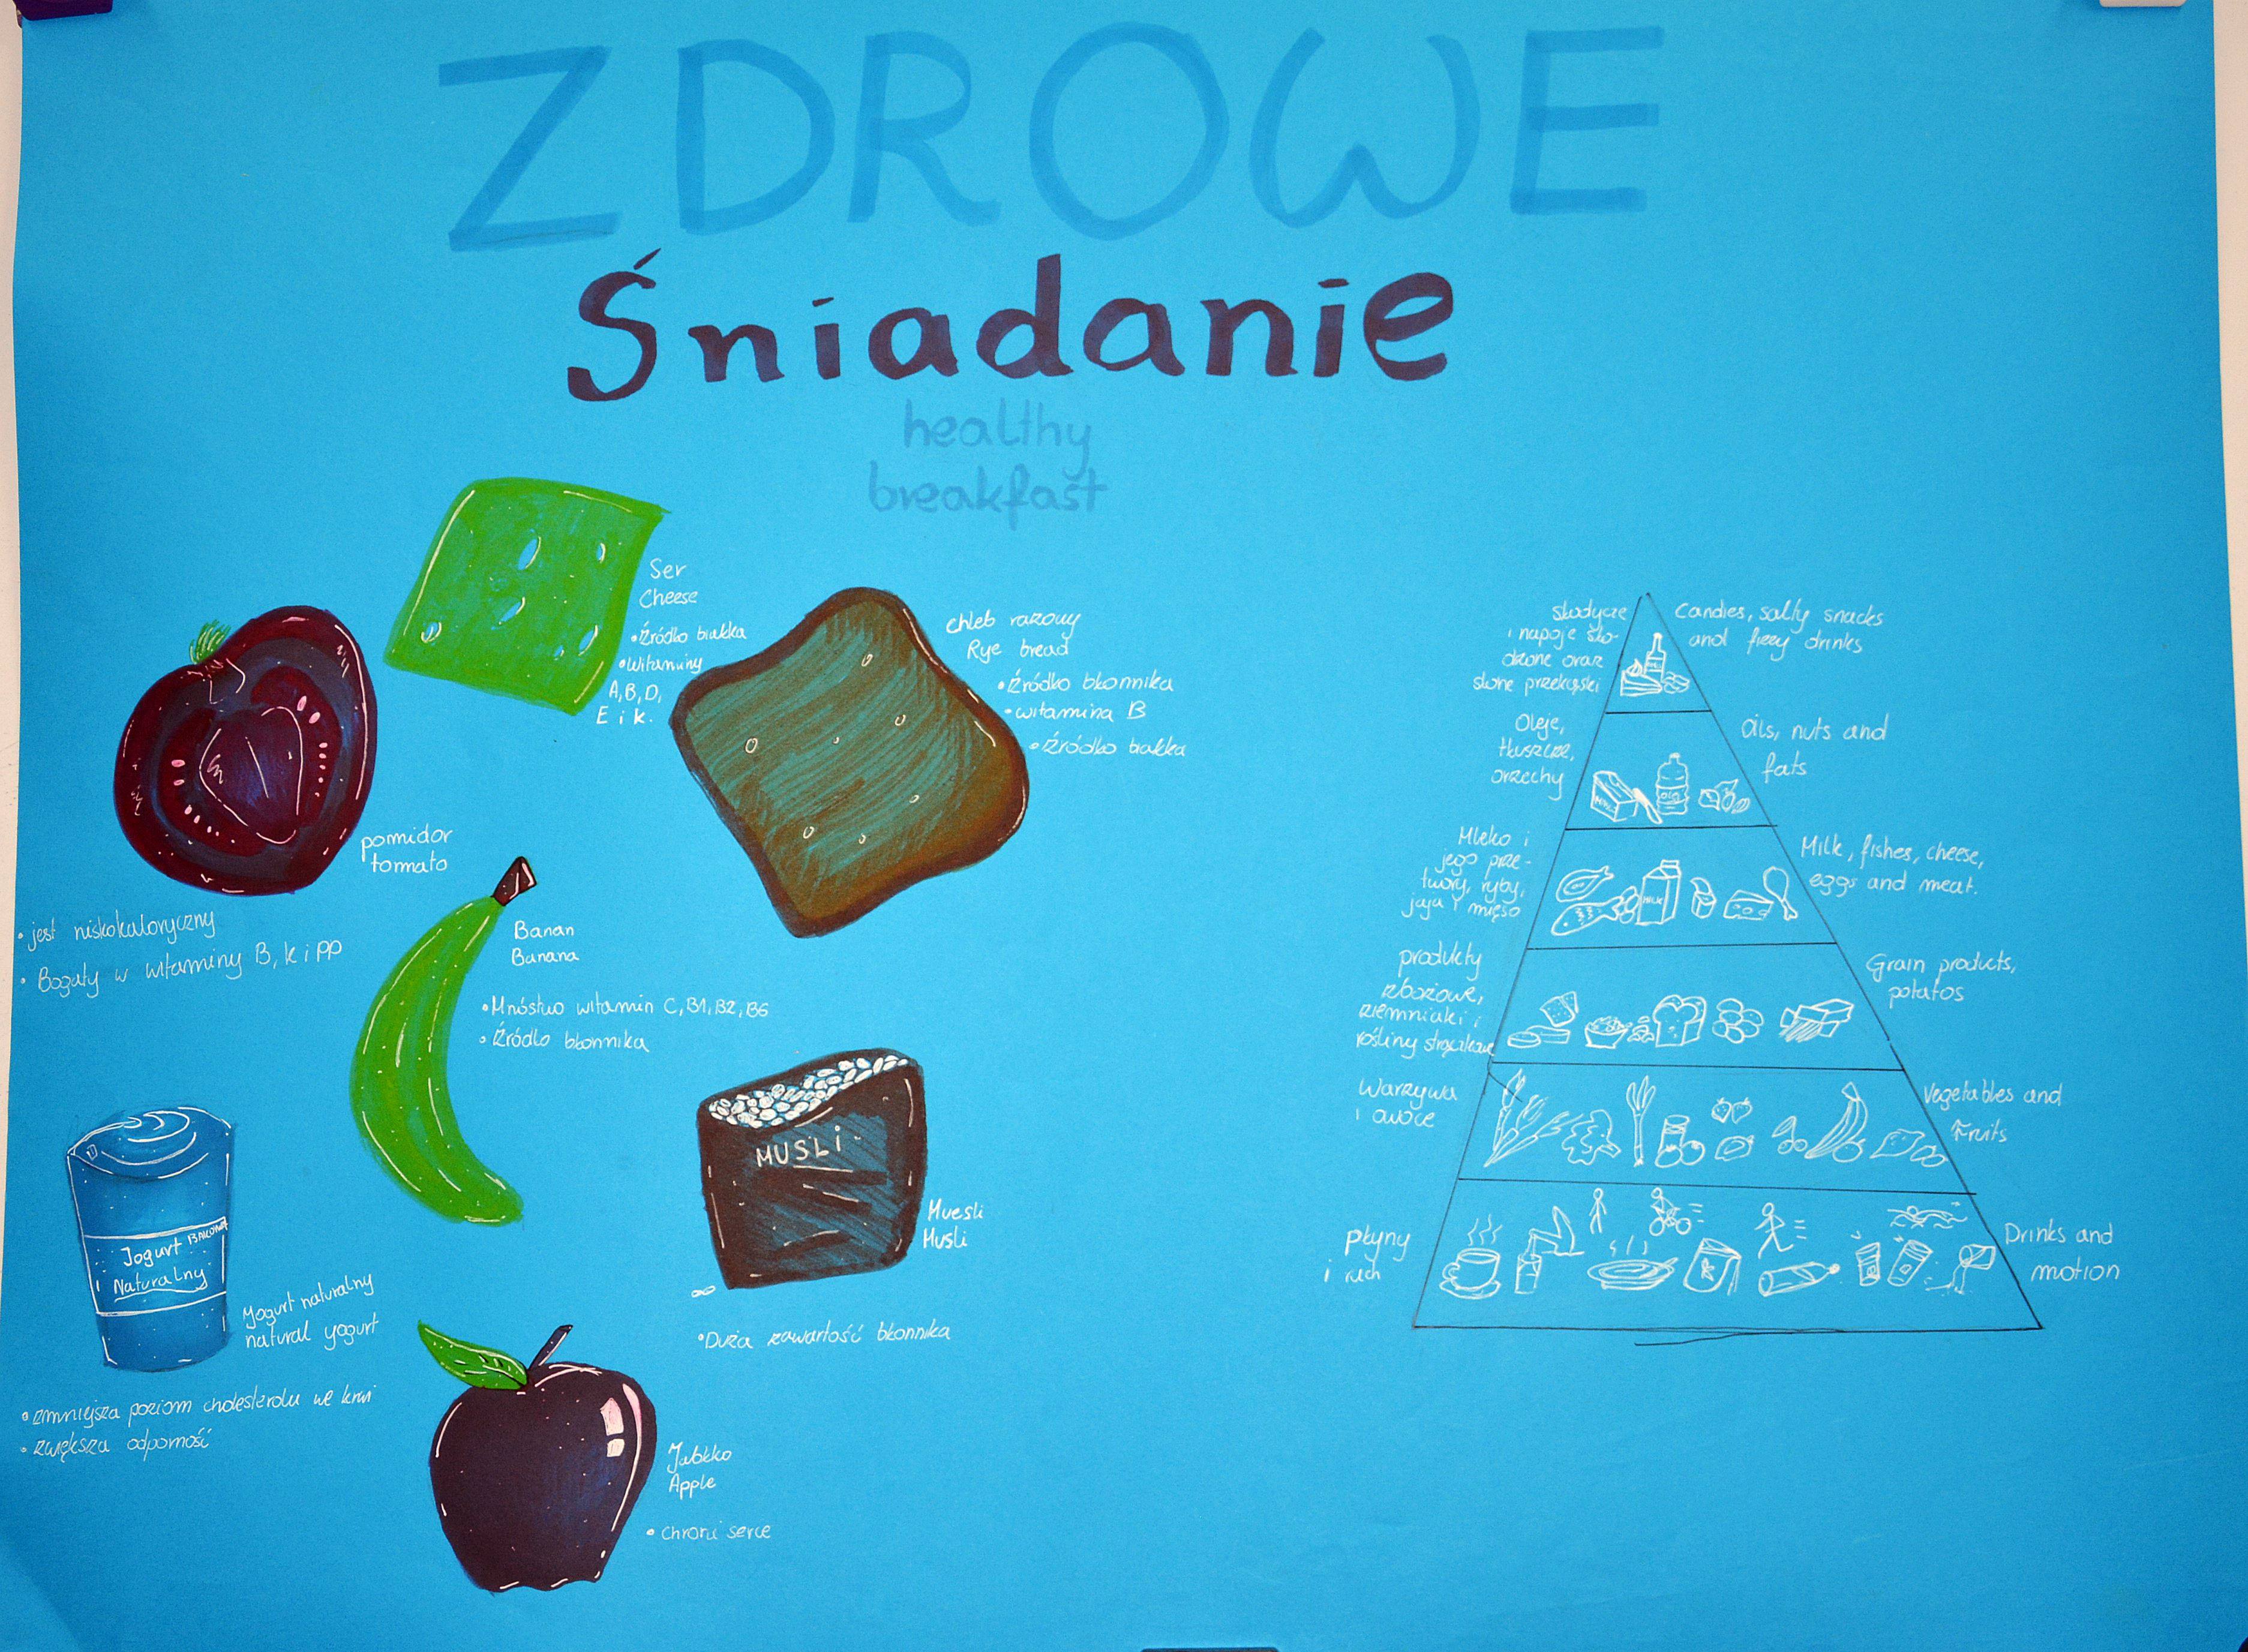 ZDROWE
Śniadanie
healthy
breakfast
Ser
Cheese
•Źródło białka
•Witaminy
A, B, D,
E i k.
chleb razowy
Rye bread
•Źródło błonnika
•witamina B
•Źródło białka
pomidor
tomato
•jest niskokaloryczny
•Bogaty w witaminy B, k i PP
Banan
Banana
•Mnóstwo witamin C, B1, B2, B6
•Źródło błonnika
MUSLi
Muesli
Musli
•Duża zawartość błonnika
Jogurt
Naturalny
Yogurt naturalny
natural yogurt
•zmniejsza poziom cholesterolu we krwi
•zwiększa odporność
Jabłko
Apple
•chroni serce
słodycze
i napoje sło-
dzone oraz
słone przekąski
Candies, salty snacks
and fizzy drinks
Oleje,
tłuszcze,
orzechy
Oils, nuts and
fats
Mleko i
jego prze-
twory, ryby,
jaja i mięso
Milk, fishes, cheese,
eggs and meat.
MILK
produkty
zbożowe,
ziemniaki i
rośliny strączkowe
Grain products,
potatos
Warzywa
i owoce
Vegetables and
Fruits
Płyny
i ruch
Drinks and
motion